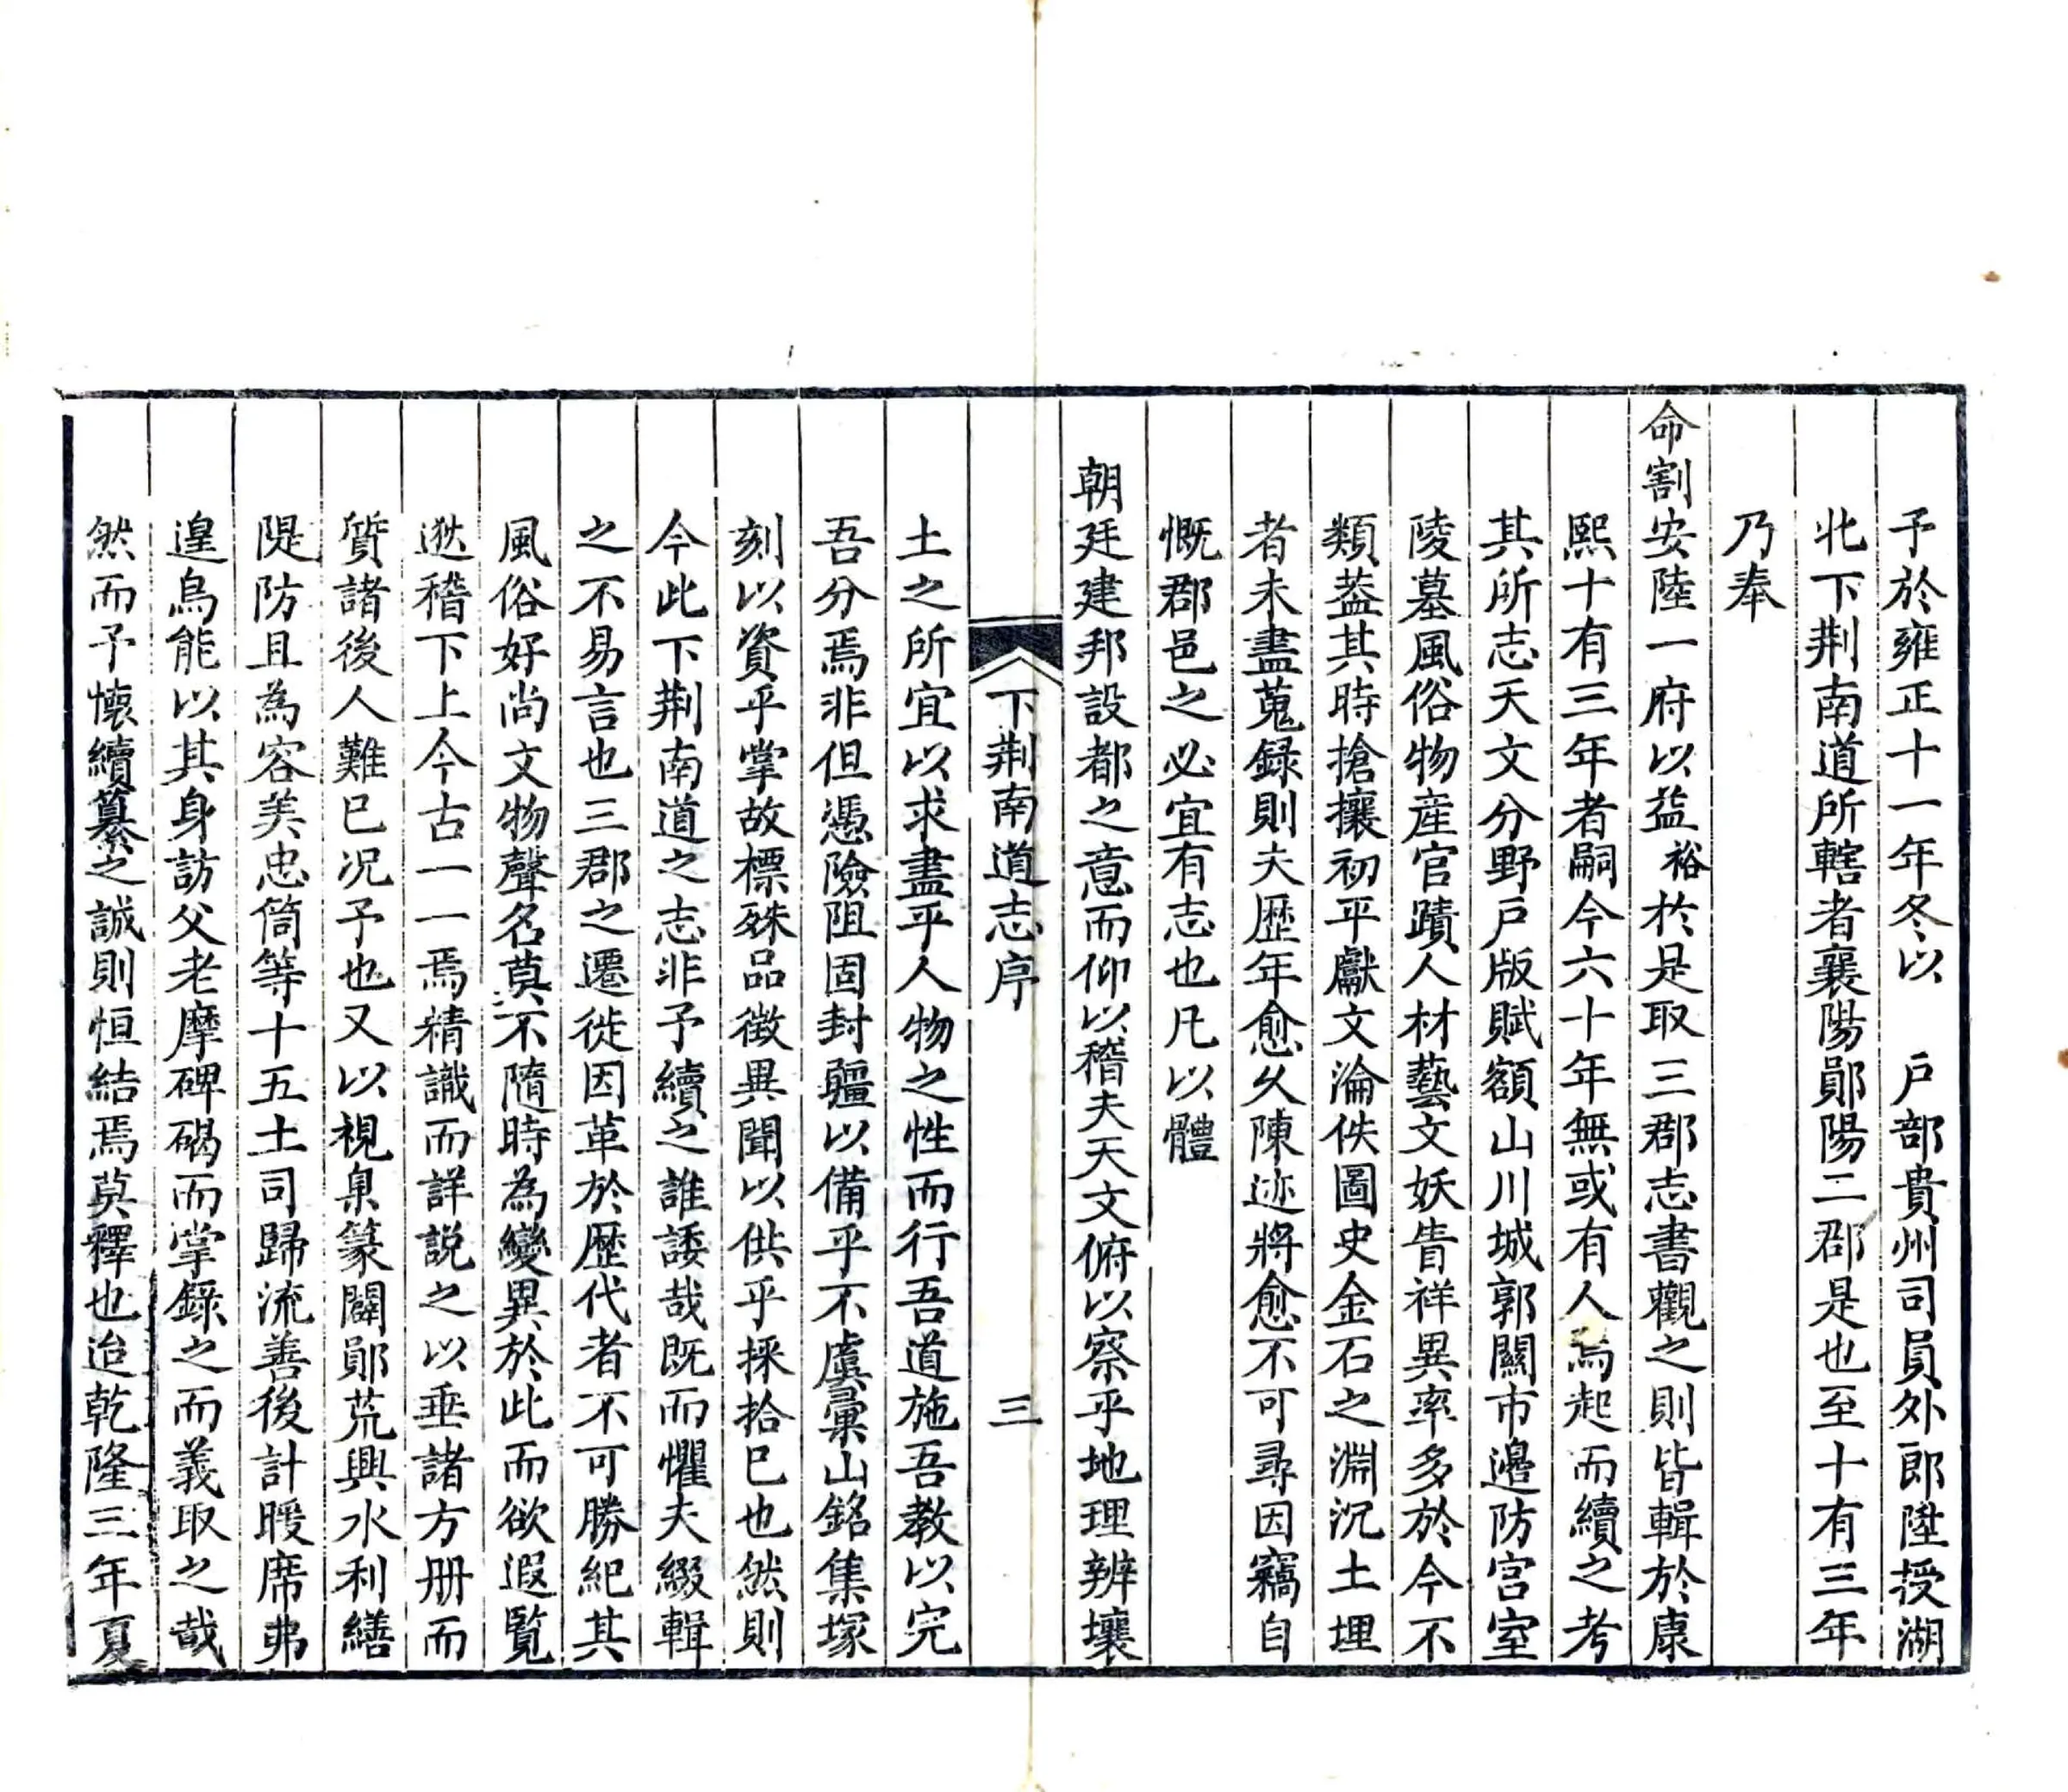 予於雍正十一年冬以　戶部貴州司員外郎陞授湖
北下荆南道所轄者襄陽鄖陽二郡是也至十有三年
乃奉
命割安陸一府以益裕於是取三郡志書觀之則皆輯於康
熙十有三年者嗣今六十年無或有人焉起而續之考
其所志天文分野戶版賦額山川城郭關市邊防宫室
陵墓風俗物産官蹟人材藝文妖眚祥異率多於今不
類葢其時搶攘初平獻文淪佚圖史金石之淵沉土埋
者未盡蒐録則夫歴年愈久陳迹將愈不可尋因竊自
慨郡邑之必宜有志也凡以體
朝廷建邦設都之意而仰以稽夫天文俯以察乎地理辨壤
下荆南道志序　三
土之所宜以求盡乎人物之性而行吾道施吾教以完
吾分焉非但憑險阻固封疆以備乎不虞彙山銘集塚
刻以資乎掌故標殊品徵異聞以供乎採拾已也然則
今此下荆南道之志非予續之誰諉哉既而懼夫綴輯
之不易言也三郡之遷徙因革於歴代者不可勝紀其
風俗好尚文物聲名莫不隨時為變異於此而欲遐覧
逖稽下上今古一一焉精識而詳説之以垂諸方册而
質諸後人難已况予也又以視臬篆闢鄖荒興水利繕
隄防且為容美忠筒等十五土司歸流善後計暖席弗
遑烏能以其身訪父老摩碑碣而掌錄之而義取之哉
然而予懷續纂之誠則恒結焉莫釋也迨乾隆三年夏